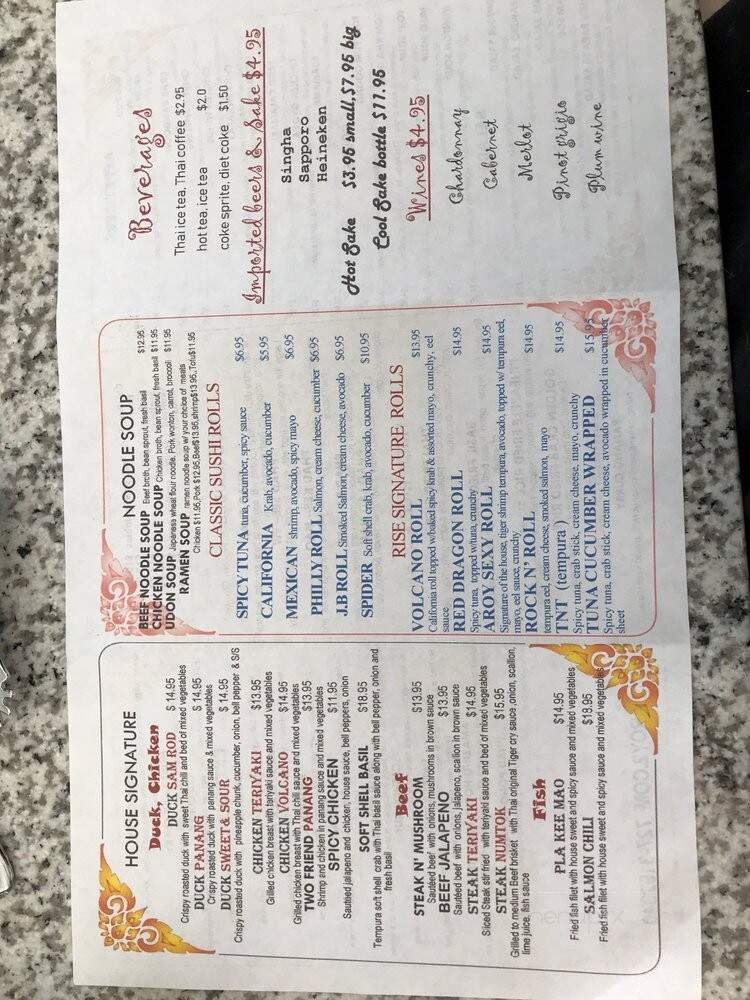 HOUSE SIGNATURE
Duck, Chicken
DUCK SAM ROD $ 14.95
Crispy roasted duck with sweet Thai chili and bed of mixed vegetables
DUCK PANANG $ 14.95
Crispy roasted duck with panang sauce & mixed vegetables
DUCK SWEET& SOUR $ 14.95
Crispy roasted duck with pineapple chunk, cucumber, onion, bell pepper & S/S
CHICKEN TERIYAKI $13.95
Grilled chicken breast with teriyaki sauce and mixed vegetables
CHICKEN VOLCANO $14.95
Grilled chicken breast with Thai chili sauce and mixed vegetables
TWO FRIEND PANANG $13.95
Shrimp and chicken in panang sauce and mixed vegetables
SPICY CHICKEN $11.95
Sautéed jalapeno and chicken, house sauce, bell peppers, onion
SOFT SHELL BASIL $18.95
Tempura soft shell crab with Thai basil sauce along with bell pepper, onion and
fresh basil
Beef
STEAK N' MUSHROOM $13.95
Sautéed beef with onions, mushrooms in brown sauce
BEEF JALAPENO $13.95
Sautéed beef with onions, jalapeno, scallion in brown sauce
STEAK TERIYAKI $14.95
Sliced Steak stir fried with teriyaki sauce and bed of mixed vegetables
STEAK NUMTOK $15.95
Grilled to medium Beef brisket with Thai original Tiger cry sauce ,onion, scallion,
lime juice, fish sauce
Fish
PLA KEE MAO $14.95
Fried fish filet with house sweet and spicy sauce and mixed vegetables
SALMON CHILI $18.95
Fried fish filet with house sweet and spicy sauce and mixed vegetables
NOODLE SOUP
BEEF NOODLE SOUP Beef broth, bean sprout, fresh basil $12.95
CHICKEN NOODLE SOUP Chicken broth, bean sprout, fresh basil $11.95
UDON SOUP Japanese wheat flour noodle. Pork wonton, carrot, broccoli $11.95
RAMEN SOUP ramen noodle soup w/ your choice of meats
Chicken $11.95,Pork $12.95,Beef$13.95,shrimp$13.95,,Tofu$11.95
CLASSIC SUSHI ROLLS
SPICY TUNA tuna, cucumber, spicy sauce $6.95
CALIFORNIA Krab, avocado, cucumber $5.95
MEXICAN shrimp, avocado, spicy mayo $6.95
PHILLY ROLL Salmon, cream cheese, cucumber $6.95
J.B ROLL Smoked Salmon, cream cheese, avocado $6.95
SPIDER Soft shell crab, krab, avocado, cucumber $10.95
RISE SIGNATURE ROLLS
VOLCANO ROLL $13.95
California roll topped w/baked spicy krab & assorted mayo, crunchy, eel
sauce
RED DRAGON ROLL $14.95
Spicy tuna, topped w/tuna, crunchy
AROY SEXY ROLL $14.95
Signature of the house, tiger shrimp tempura, avocado, topped w/ tempura eel,
mayo, eel sauce, crunchy
ROCK N' ROLL $14.95
tempura eel, cream cheese, smoked salmon, mayo
TNT (tempura ) $14.95
Spicy tuna, crab stick, cream cheese, mayo, crunchy
TUNA CUCUMBER WRAPPED $15.95
Spicy tuna, crab stick, cream cheese, avocado wrapped in cucumber
sheet
Beverages
Thai ice tea, Thai coffee $2.95
hot tea, ice tea $2.0
coke sprite, diet coke $1.50
Imported beers & Sake $4.95
Singha
Sapporo
Heineken
Hot Sake $3.95 small,$7.95 big
Cool Sake bottle $11.95
Wines $4.95
Chardonnay
Cabernet
Merlot
Pinot grigio
Plum wine